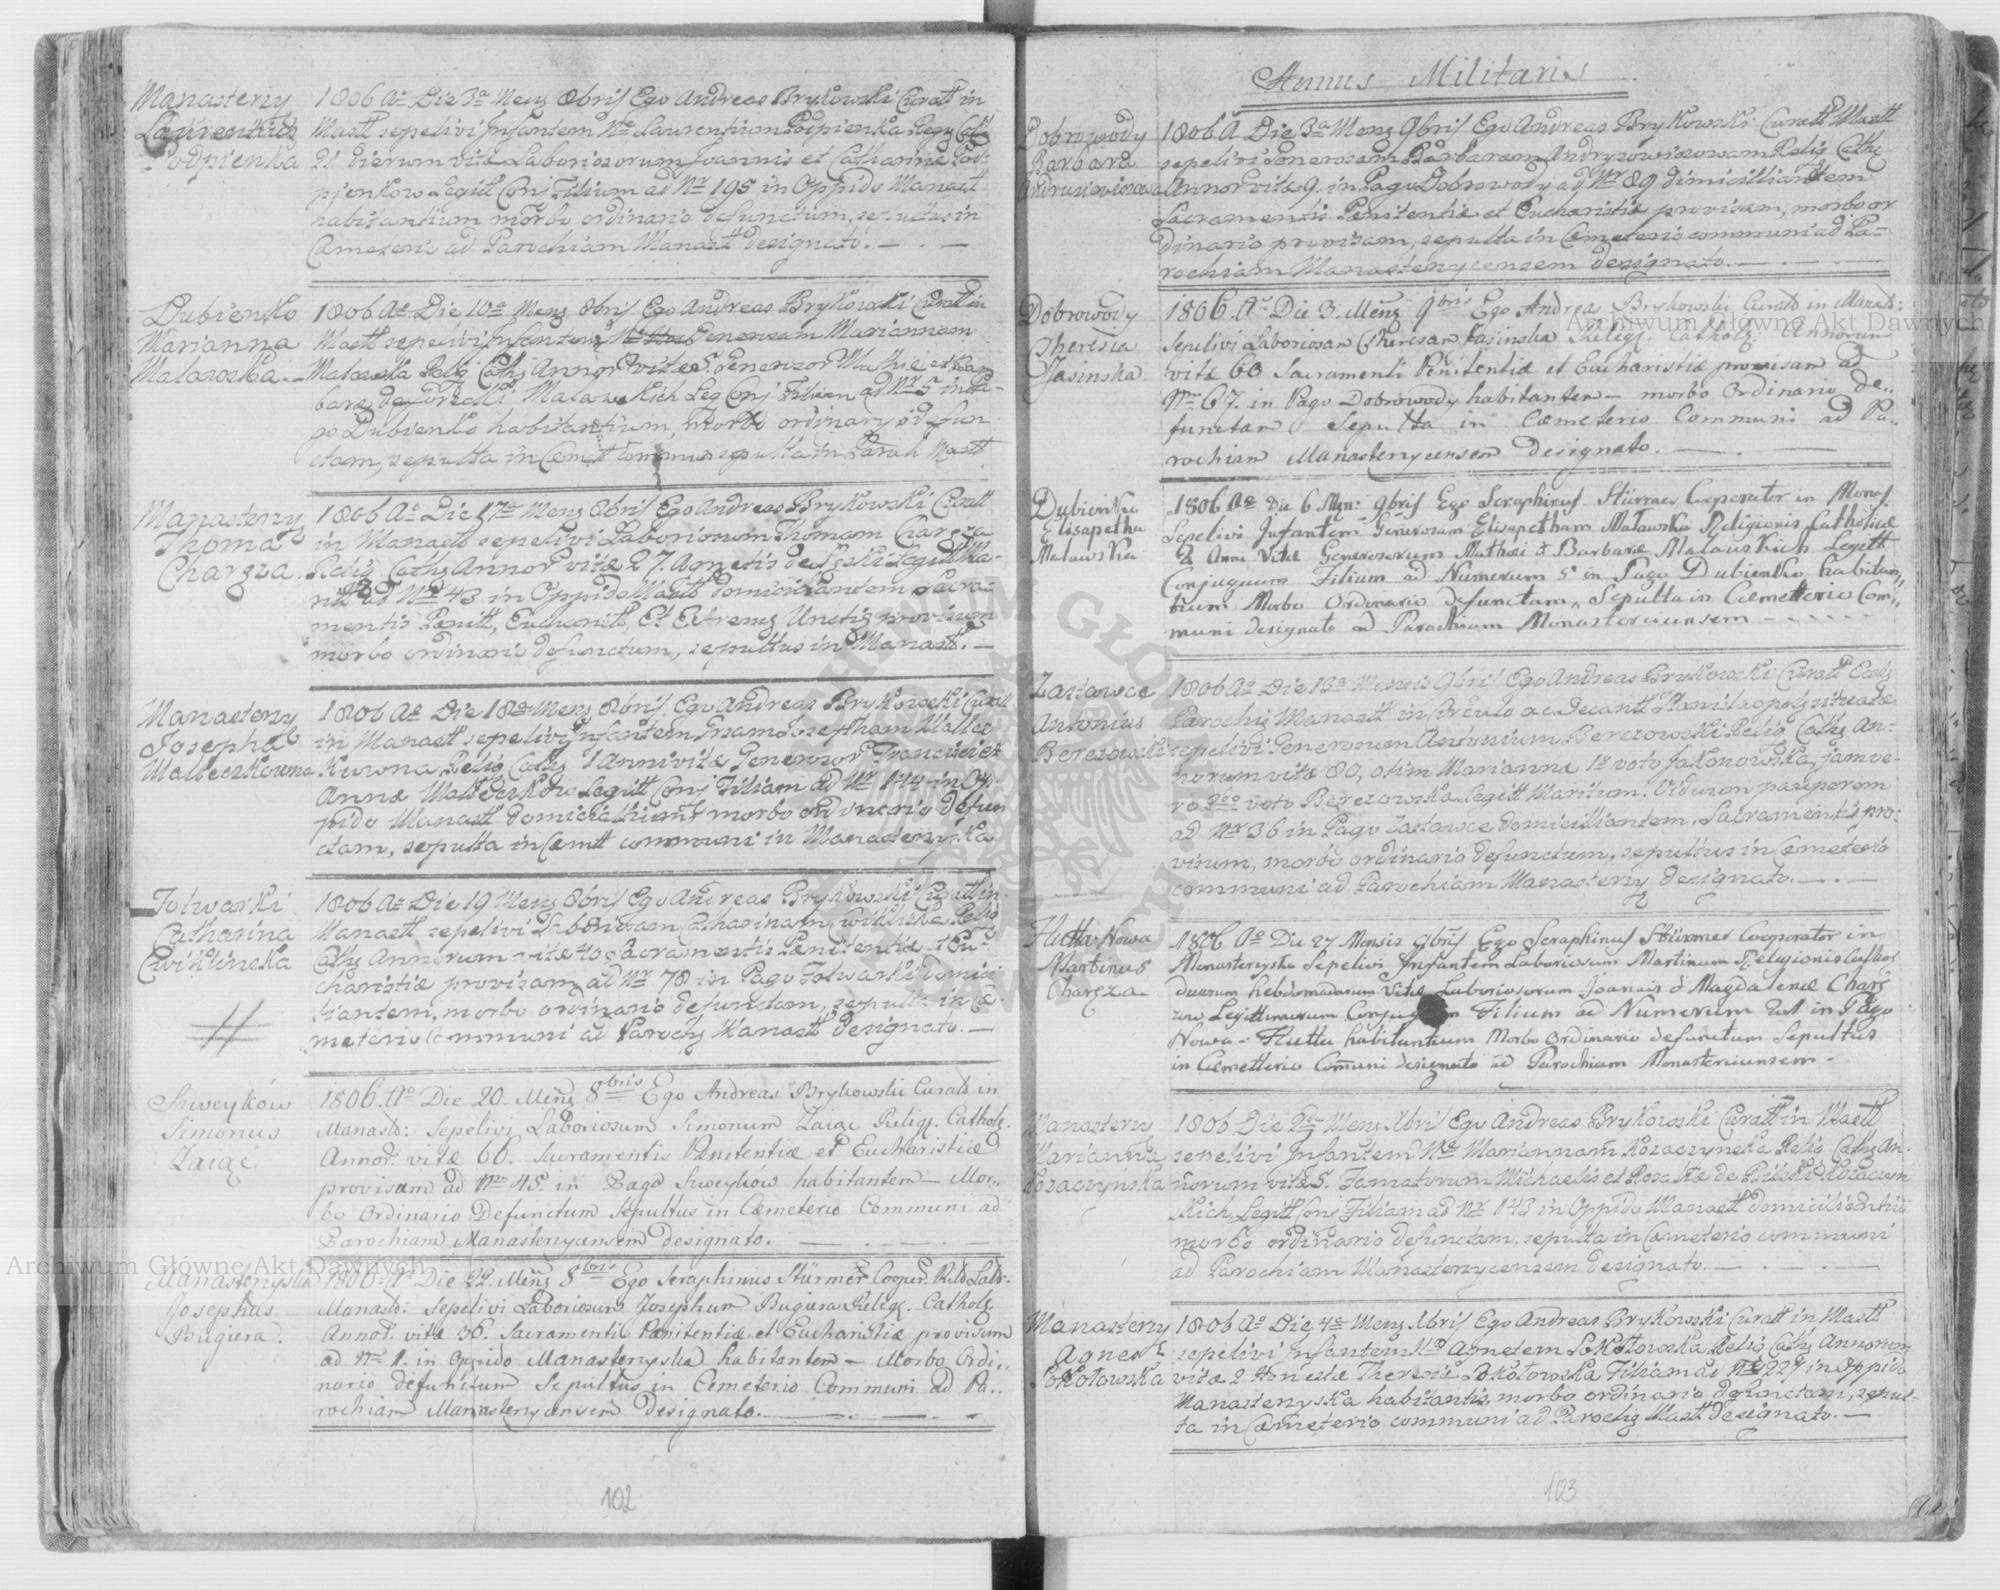 Manasterzy
Laurentius
Podpienka
1806 Ao Die 3a Mens 8bris Ego Andreas Brykowski Curatt in
Mastt sepelivi Infantem Nro Laurentium Podpienka Relig Cath
21 dierum vitæ Laboriosorum Joannis et Catharinæ Pod-
pienkow Legitt Conj Filium ad Nr 195 in Oppido Manastt
habitantium morbo ordinario defunctum, sepultus in
Cameterii ad Parochiam Manastt designato. — . —
Dubienko
Marianna
Malawska. -
1806 Ao Die 10a Mens 8bris Ego Andreas Brykowski Curatt in
Mastt sepelivi Infantem Generosam Mariannam
Malawska Relig Cath Annor vitæ 5. Generosor Mathiæ et Bar-
baræ de Malawskich Leg Conj Filiam ad Nr 5 in Pa-
go Dubienko habitantium, morbo ordinary o defun-
ctam, sepulta in Cemet communi sepulta in Parah Mastt
Manasterzy
Thoma
Chargza.
1806 Ao Die 17a Mens 8bris Ego Andreas Brykowski Curatt
in Manastt sepelivi Laboriosum Thomam Chargza
Relig Cath Annor vitæ 27. Agnetis de Legitt Ma-
ritt ad Nro 43 in Oppido Mastt domiciliantem Sacra-
mentis Pænitt, Eucharitt, Et Extremæ Unctis provisum
morbo ordinario defunctum, sepultus in Manastt. —
Manasterzy
Josepha
Walleczkowna
1806 Ao Die 18a Mens 8bris Ego Andreas Brykowski Curatt
in Manastt sepelivi Infantem Josepham Wallecz
Kowna Relig Cath 1 Anni vitæ Generosor Francisci et
Annæ Walleczkow Legitt Conj Filiam ad Nr 144 in Op-
pido Manastt domiciliantium morbo ordinario defun
ctam, sepulta in Cæmtt communi in Manasterzyska
Folwarki
Catharina
Cwiklinska
1806 Ao Die 19 Mens 8bris Ego Andreas Brykowski Curatt in
Manastt sepelivi Laboriosam Catharinam Cwiklinska Relig
Cath Annorum vitæ 40 Sacramentis Pænitentiæ et Eu-
charistiæ provisam ad Nr 78 in Pago Folwarki domici
liantem, morbo ordinario defunctam, sepulta in Cæ-
meterio Communi ad Paroch Manastt designato. —
Szweyków
Simonus
Zaiąc.
1806. Ao Die 20. Menz 8bris Ego Andreas Brykowski Curatd in
Manastd: Sepelivi Laboriosum Simonum Zaiąc Religs. Catholz.
Annor. vitæ 66. Sacramentis Pænitentiæ et Eucharisticæ
provisam ad Nro 45. in Pago Szweyków habitantem — Mor..
bo Ordinario Defunctum Sepultus in Cæmeterio Communi ad
Parochiam Manasterzycensem designato. — . — . —
Manasterzyska
Josephus
Bugiera.
1806. Ao Die 22. Menz 8bris Ego Seraphinus Stürmer Cooper. Ritd Latd:
Manastd: Sepelivi Laboriosum Josephum Bugiera Religs. Catholz.
Annor. vitæ 36. Sacramentis Pænitentiæ et Eucharistiæ provisum
ad Nro 1. in Oppido Manasterzyska habitantem — Morbo Ordi..
nario defunctum Sepultus in Cemeterio Communi ad Pa..
rochiam Manasterzycensem Designato. — . — . —
102
Annus Militaris
Dobrowody
Barbara
Andrusiewiczowa
1806 A Die 3a Mens 9bris Ego Andreas Brykowski Curatt Mastt
sepelivi Generosam Barbaram Andryzowiczowam Relig Cath
Annor vitæ 9. in Pago Dobrowody ad Nr 89 dimicilliantem
Sacramentis Pænitentiæ et Eucharistiæ provisam, morbo or
dinario provisam, sepulta in Cæmeterio communi ad Pa-
rochiam Manasterzycensem designato. — . — . —
Dobrowody
Theresia
Jasinska
1806. Ao Die 3. Menz 9bris Ego Andreas Brykowski Curatd in Manastd:
Sepelivi Laboriosam Theresam Jasinska Religs. Catholz. Annorum
vitæ 60 Sacramenti Penitentiæ et Eucharistiæ provisam ad
Nro 67. in Pago Dobrowody habitantem — morbo Ordinario De..
functam Sepulta in Cæmeterio Communi ad Pa..
rochiam Manasterzycensem Designato. — . —
Dubienko
Elisapetha
Malawska
1806 Ao Die 6 Men: 9bris Ego Seraphinus Stürmer Cooperator in Monas
Sepelivi Infantem Generosam Elisapetham Malawska Religionis Catholicæ
2 Anni Vitæ Generosorum Mathæi et Barbaræ Malawskich Legitt
Conjuguum Filium ad Numerum 5 in Pago Dubienko habitan,,
tium Morbo Ordinario defunctam,, Sepulta in Cæmetterio Com,,
muni designato ad Parochiam Monasterciensem - - - -
Zastawce
Antonius
Berezowski
1806 Ao Die 13a Mensis 9bris Ego Andreas Brykowski Curatt Eccl
Parochiæ Manastt in Circulo ac Decantt Stanislaopoli situatæ
sepelivi Generosum Antonium Berezowski Relig Cath An-
norum vitæ 80, olim Mariannæ 1o voto Jakonowska, jam ve-
ro 2do voto Berezowska Legitt Maritum. Viduum pauperem
ad Nr 36 in Pago Zastawce domicilliantem, Sacramentis pro-
visum, morbo ordinario defunctum, sepultus in Cæmeterio
communi ad Parochiam Manasterzy designato. — . —
Hutta Nowa
Martinus
Chargza
1806 Ao Die 27 Mensis 9bris Ego Seraphinus Stürmer Cooperator in
Monasterzyska Sepelivi Infantem Laboriosum Martinum Religionis Cathol
duarum hebdomadarum Vitæ Laboriosorum Joannis et Magdalenæ Charg
zow Legittimorum Conjugum Filium ad Numerum 201 in Pago
Nowa - Huttu habituntium Morbo Ordinario defunctum Sepultus
in Cæmetterio Comuni designato ad Parochiam Monasterciensem -
Manasterzy
Marianna
Kozaczynska
1806 Die 2da Mens Xbris Ego Andreas Brykowski Curatt in Mastt
sepelivi Infantem Nro Mariannam Kozaczynska Relig Cath An-
norum vitæ 5. Famatorum Michaelis et Rosaliæ de Kozaczyn
skich Legitt Conj Filiam ad Nr 143 in Oppido Manastt domiciliantiu
morbo ordinario defunctam, sepulta in Cæmeterio communi
ad Parochiam Manasterzycensem designato. — . — . —
Manasterzy
Agnes
Sokołowska
1806 Ao Die 4a Mens Xbris Ego Andreas Brykowski Curatt in Mastt
sepelivi Infantem Nro Agnetem Sokołowska Relig Cath Annorum
vitæ 2 Honestæ Theresiæ Sokołowska Filiam ad Nr 229 in Oppido
Manasterzyska habitantis, morbo ordinario defunctam, sepul-
ta in Cæmeterio communi ad Parochiæ Mastt designato. —
103
Archiwum Główne Akt Dawnych
Archiwum Główne Akt Dawnych